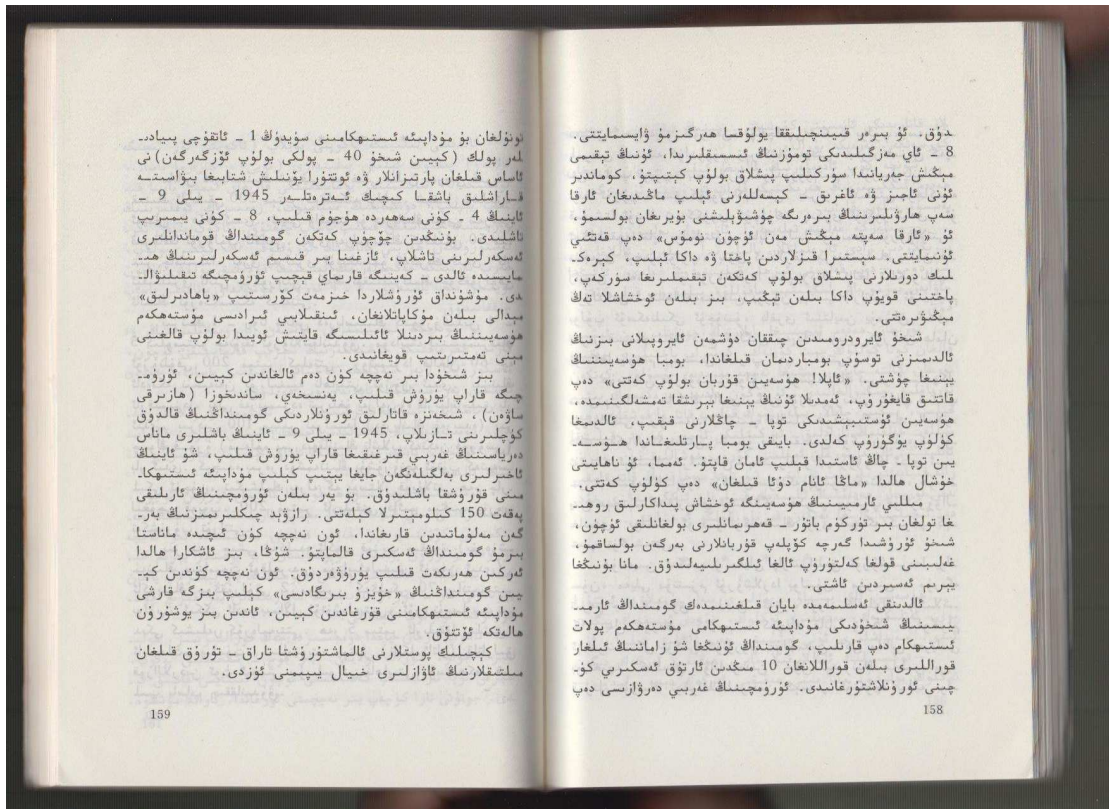 دۇق. ئۇ بىرەر قىيىنچىلىققا يولۇقسا ھەرگىزمۇ ۋايسىمايتتى.
8 ـ ئاي مەزگىلىدىكى تومۇزنىڭ ئىسسىقلىرىدا، ئۇنىڭ تېقىمى
مېڭىش جەريانىدا سۈركىلىپ پىشلاق بولۇپ كېتىپتۇ، كوماندىر
ئۇنى ئاجىز ۋە ئاغرىق ـ كېسەللەرنى ئېلىپ ماڭىدىغان ئارقا
سەپ ھارۋىلىرىنىڭ بىرەرىگە چۈشىۋېلىشنى بۇيرىغان بولسىمۇ،
ئۇ «ئارقا سەپتە مېڭىش مەن ئۈچۈن نومۇس» دەپ قەتئىي
ئۇنىمايتتى. سېستىرا قىزلاردىن پاختا ۋە داكا ئېلىپ، كېرەكـ
لىك دورىلارنى پىشلاق بولۇپ كەتكەن تېقىملىرىغا سۈركەپ،
پاختىنى قويۇپ داكا بىلەن تېڭىپ، بىز بىلەن ئوخشاشلا تەڭ
مېڭىۋېرەتتى.
شىخۇ ئايرودرومىدىن چىققان دۈشمەن ئايروپىلانى بىزنىڭ
ئالدىمىزنى توسۇپ بومباردىمان قىلغاندا، بومبا ھۈسەيىننىڭ
يېنىغا چۈشتى. «ئاپلا! ھۈسەيىن قۇربان بولۇپ كەتتى» دەپ
قاتتىق قايغۇرۇپ، ئەمدىلا ئۇنىڭ يېنىغا بېرىشقا تەمشەلگىنىمدە،
ھۈسەيىن ئۈستىبېشىدىكى توپا ـ چاڭلارنى قېقىپ، ئالدىمغا
كۈلۈپ يۈگۈرۈپ كەلدى. بايىقى بومبا پارتلىغاندا ھۈسەـ
يىن توپا ـ چاڭ ئاستىدا قېلىپ ئامان قاپتۇ. ئەمما، ئۇ ناھايىتى
خۇشال ھالدا «ماڭا ئانام دۇئا قىلغان» دەپ كۈلۈپ كەتتى.
مىللىي ئارمىيىنىڭ ھۈسەيىنگە ئوخشاش پىداكارلىق روھىـ
غا تولغان بىر تۈركۈم باتۇر ـ قەھرىمانلىرى بولغانلىقى ئۈچۈن،
شىخۇ ئۇرۇشىدا گەرچە كۆپلەپ قۇربانلارنى بەرگەن بولساقمۇ،
غەلىبىنى قولغا كەلتۈرۈپ ئالغا ئىلگىرىلىيەلىدۇق. مانا بۇنىڭغا
يېرىم ئەسىردىن ئاشتى.
ئالدىنقى ئەسلىمەمدە بايان قىلغىنىمدەك گومىنداڭ ئارمىـ
يىسىنىڭ شىخۇدىكى مۇداپىئە ئىستىھكامى مۇستەھكەم پولات
ئىستىھكام دەپ قارىلىپ، گومىنداڭ ئۇنىڭغا شۇ زاماننىڭ ئىلغار
قوراللىرى بىلەن قوراللانغان 10 مىڭدىن ئارتۇق ئەسكىرىي كۈـ
چىنى ئورۇنلاشتۇرغانىدى. ئۈرۈمچىنىڭ غەربىي دەرۋازىسى دەپ
158
تونۇلغان بۇ مۇداپىئە ئىستىھكامىنى سۈيدۈڭ 1 ـ ئاتقۇچى پىيادىـ
لەر پولك (كېيىن شىخۇ 40 ـ پولكى بولۇپ ئۆزگەرگەن) نى
ئاساس قىلغان پارتىزانلار ۋە ئوتتۇرا يۆنىلىش شتابىغا بىۋاستە
قاراشلىق باشقا كىچىك ئەترەتلەر 1945 ـ يىلى 9 ـ
ئاينىڭ 4 ـ كۈنى سەھەردە ھۇجۇم قىلىپ، 8 ـ كۈنى يىمىرىپ
تاشلىدى. بۇنىڭدىن چۆچۈپ كەتكەن گومىنداڭ قوماندانلىرى
ئەسكەرلىرىنى تاشلاپ، ئازغىنا بىر قىسىم ئەسكەرلىرىنىڭ ھىـ
مايىسىدە ئالدى ـ كەينىگە قارىماي قېچىپ ئۈرۈمچىگە تىقىلىۋالـ
دى. مۇشۇنداق ئۇرۇشلاردا خىزمەت كۆرسىتىپ «باھادىرلىق»
مېدالى بىلەن مۇكاپاتلانغان، ئىنقىلابىي ئىرادىسى مۇستەھكەم
ھۈسەيىننىڭ بىردىنلا ئائىلىسىگە قايتىش ئويىدا بولۇپ قالغىنى
مېنى تەمتىرىتىپ قويغانىدى.
بىز شىخۇدا بىر نەچچە كۈن دەم ئالغاندىن كېيىن، ئۈرۈمـ
چىگە قاراپ يۈرۈش قىلىپ، يەنسىخەي، ساندىخوزا (ھازىرقى
ساۋەن)، شىخەنزە قاتارلىق ئورۇنلاردىكى گومىنداڭنىڭ قالدۇق
كۈچلىرىنى تازىلاپ، 1945 ـ يىلى 9 ـ ئاينىڭ باشلىرى ماناس
دەرياسىنىڭ غەربىي قىرغىقىغا قاراپ يۈرۈش قىلىپ، شۇ ئاينىڭ
ئاخىرلىرى بەلگىلەنگەن جايغا يېتىپ كېلىپ مۇداپىئە ئىستىھكاـ
مىنى قۇرۇشقا باشلىدۇق. بۇ يەر بىلەن ئۈرۈمچىنىڭ ئارىلىقى
پەقەت 150 كىلومېتىرلا كېلەتتى. رازۋېد چىكلىرىمىزنىڭ بەرـ
گەن مەلۇماتىدىن قارىغاندا، ئون نەچچە كۈن ئىچىدە ماناستا
بىرمۇ گومىنداڭ ئەسكىرى قالماپتۇ. شۇڭا، بىز ئاشكارا ھالدا
ئەركىن ھەرىكەت قىلىپ يۈرۈۋەردۇق. ئون نەچچە كۈندىن كېـ
يىن گومىنداڭنىڭ «خۇيزۇ بىرىگادىسى» كېلىپ بىزگە قارشى
مۇداپىئە ئىستىھكامىنى قۇرغاندىن كېيىن، ئاندىن بىز يوشۇرۇن
ھالەتكە ئۆتتۇق.
كېچىلىك پوستلارنى ئالماشتۇرۇشتا تاراق ـ تۇرۇق قىلغان
مىلتىقلارنىڭ ئاۋازلىرى خىيال يىپىمنى ئۈزدى.
159